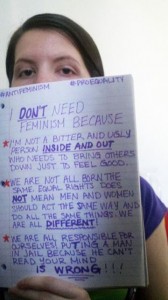 #ANTIFEMINISM #PROEQUALITY
I DON'T NEED
FEMINISM BECAUSE
★I'M NOT A BITTER AND UGLY
PERSON INSIDE AND OUT
WHO NEEDS TO BRING OTHERS
DOWN JUST TO FEEL GOOD.
★WE ARE NOT ALL BORN THE
SAME. EQUAL RIGHTS DOES
NOT MEAN MEN AND WOMEN
SHOULD ACT THE SAME WAY AND
DO ALL THE SAME THINGS. WE
ARE ALL DIFFERENT!
★WE ARE ALL RESPONSIBLE FOR
OURSELVES! PUTTING A MAN
IN JAIL BECAUSE HE CAN'T
READ YOUR MIND
IS WRONG!!!